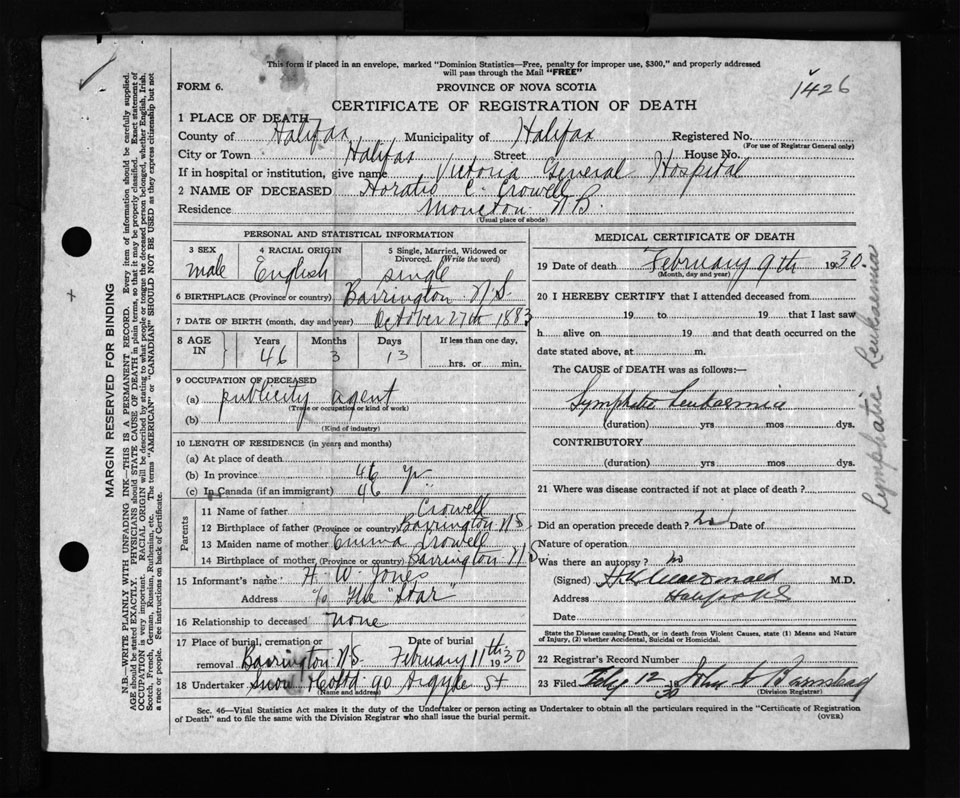 This form if placed in an envelope, marked "Dominion Statistics—Free, penalty for improper use, $300," and properly addressed
will pass through the Mail "FREE"
FORM 6.
PROVINCE OF NOVA SCOTIA
1426
CERTIFICATE OF REGISTRATION OF DEATH
1 PLACE OF DEATH
County of Halifax Municipality of Halifax Registered No.
(For use of Registrar General only)
City or Town Halifax Street House No.
If in hospital or institution, give name Victoria General Hospital
2 NAME OF DECEASED Horatio C. Crowell
Residence Moncton N.B.
(Usual place of abode)
PERSONAL AND STATISTICAL INFORMATION
3 SEX 4 RACIAL ORIGIN 5 Single, Married, Widowed or
Divorced. (Write the word)
male English single
6 BIRTHPLACE (Province or country) Barrington N.S.
7 DATE OF BIRTH (month, day and year) October 27th 1883
8 AGE IN Years Months Days If less than one day,
46 3 13 hrs. or min.
9 OCCUPATION OF DECEASED
(a) publicity agent
(Trade or occupation or kind of work)
(b)
(Kind of industry)
10 LENGTH OF RESIDENCE (in years and months)
(a) At place of death
(b) In province 46 yr
(c) In Canada (if an immigrant) 46
Parents
11 Name of father Crowell
12 Birthplace of father (Province or country) Barrington N.S.
13 Maiden name of mother Emma Crowell
14 Birthplace of mother (Province or country) Barrington N.S
15 Informant's name H. W. Jones
Address c/o The "Star"
16 Relationship to deceased none
17 Place of burial, cremation or Date of burial
removal Barrington N.S. February 11th 1930
18 Undertaker Snow Co Ltd 90 Argyle St
(Name and address)
MEDICAL CERTIFICATE OF DEATH
19 Date of death February 9th 1930.
(Month, day and year)
20 I HEREBY CERTIFY that I attended deceased from
19 to 19 that I last saw
h alive on 19 and that death occurred on the
date stated above, at m.
The CAUSE of DEATH was as follows:—
Lymphatic Leukaemia
(duration) yrs mos dys.
CONTRIBUTORY
(duration) yrs. mos. dys.
21 Where was disease contracted if not at place of death?
Did an operation precede death? no Date of
Nature of operation
Was there an autopsy? no
(Signed) M.D.
Address Halifax N.S.
Date
State the Disease causing Death, or in death from Violent Causes, state (1) Means and Nature
of Injury, (2) whether Accidental, Suicidal or Homicidal.
22 Registrar's Record Number
23 Filed Feby 12 30 John
(Division Registrar)
Sec. 46—Vital Statistics Act makes it the duty of the Undertaker or person acting as Undertaker to obtain all the particulars required in the "Certificate of Registration
of Death" and to file the same with the Division Registrar who shall issue the burial permit.
(OVER)
Lymphatic Leukaemia
MARGIN RESERVED FOR BINDING
N.B.—WRITE PLAINLY WITH UNFADING INK—THIS IS A PERMANENT RECORD. Every item of information should be carefully supplied.
AGE should be stated EXACTLY. PHYSICIANS should STATE CAUSE OF DEATH in plain terms, so that it may be properly classified. Exact statement of
OCCUPATION is very important. RACIAL ORIGIN will be described by stating to what people or tongue the deceased person belonged, whether English, Irish,
Scotch, French, German, Russian, Ruthenian, etc. The terms "AMERICAN" or "CANADIAN" SHOULD NOT BE USED as they express citizenship but not
a race or people. See instructions on back of Certificate.